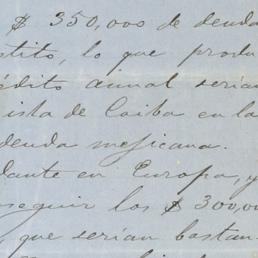 $ 350,000 de deuda
tito, lo que produ
édito anual serían
ista de Coiba en la
deuda mejicana.
dante en Europa, y
seguir los $ 300,00
que serían bastan